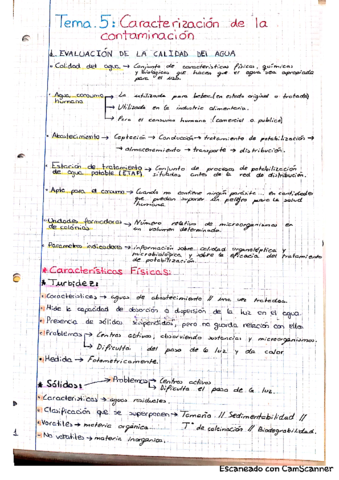 Tema.5: Caracterización de la
contaminación
1. EVALUACIÓN DE LA CALIDAD DEL AGUA
• Calidad del agua → Conjunto de características físicas, químicas
y biológicas que hacen que el agua sea apropiada
para el uso.
• Agua consumo humano → La utilizada para beber (en estado original o tratada)
→ Utilizada en la industria alimentaria.
→ Para el consumo humano (comercial o público)
• Abastecimiento → Captación → Conducción → tratamiento de potabilización →
→ almacenamiento → transporte → distribución.
• Estación de tratamiento de agua potable (ETAP) → Conjunto de procesos de potabilización
situados antes de la red de distribución.
• Apta para el consumo → Cuando no contiene ningún parásito... en cantidades
que puedan suponer un peligro para la salud
humana.
• Unidades formadoras de colonias → Número relativo de microorganismos en
un volumen determinado.
• Parametros indicadores → información sobre calidad organoléptica y
microbiológica y sobre la eficacia del tratamiento
de potabilización.
Características Físicas:
Turbidez:
Características → aguas de abastecimiento // una vez tratadas.
Mide la capacidad de absorción o dispersión de la luz en el agua.
Presencia de sólidos suspendidos, pero no guarda relación con ella.
Problemas → Centros activos, absorviendo sustancias y microorganismos.
→ Dificulta el paso de la luz y da color
Medida → Fotometricamente.
Sólidos: → Problemas → Centros activos
→ Dificulta el paso de la luz.
Características → aguas residuales.
Clasificación que se superponen → Tamaño // Sedimentabilidad //
Tª de calcinación // Biodegrabilidad.
Volatiles → materia orgánica
No volatiles → materia inorgánica.
Escaneado con CamScanner